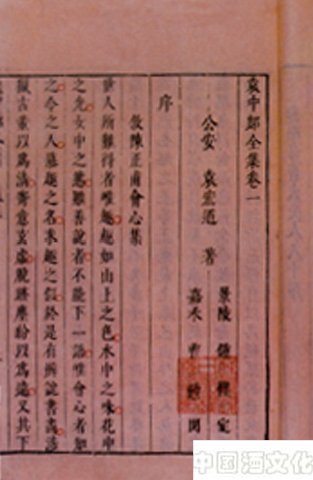 袁中郎全集卷一
公安 袁宏道 著
景陵 鍾惺 定
嘉禾 閱
序
敘陳正甫會心集
世人所難得者唯趣趣如山上之色水中之味花中
之光女中之態雖善說者不能下一語唯會心者知
之今之人慕趣之名求趣之似於是有辨說書畫涉
獵古董以爲清寄意玄虛脫跡塵紛以爲遠又其下
中国酒文化